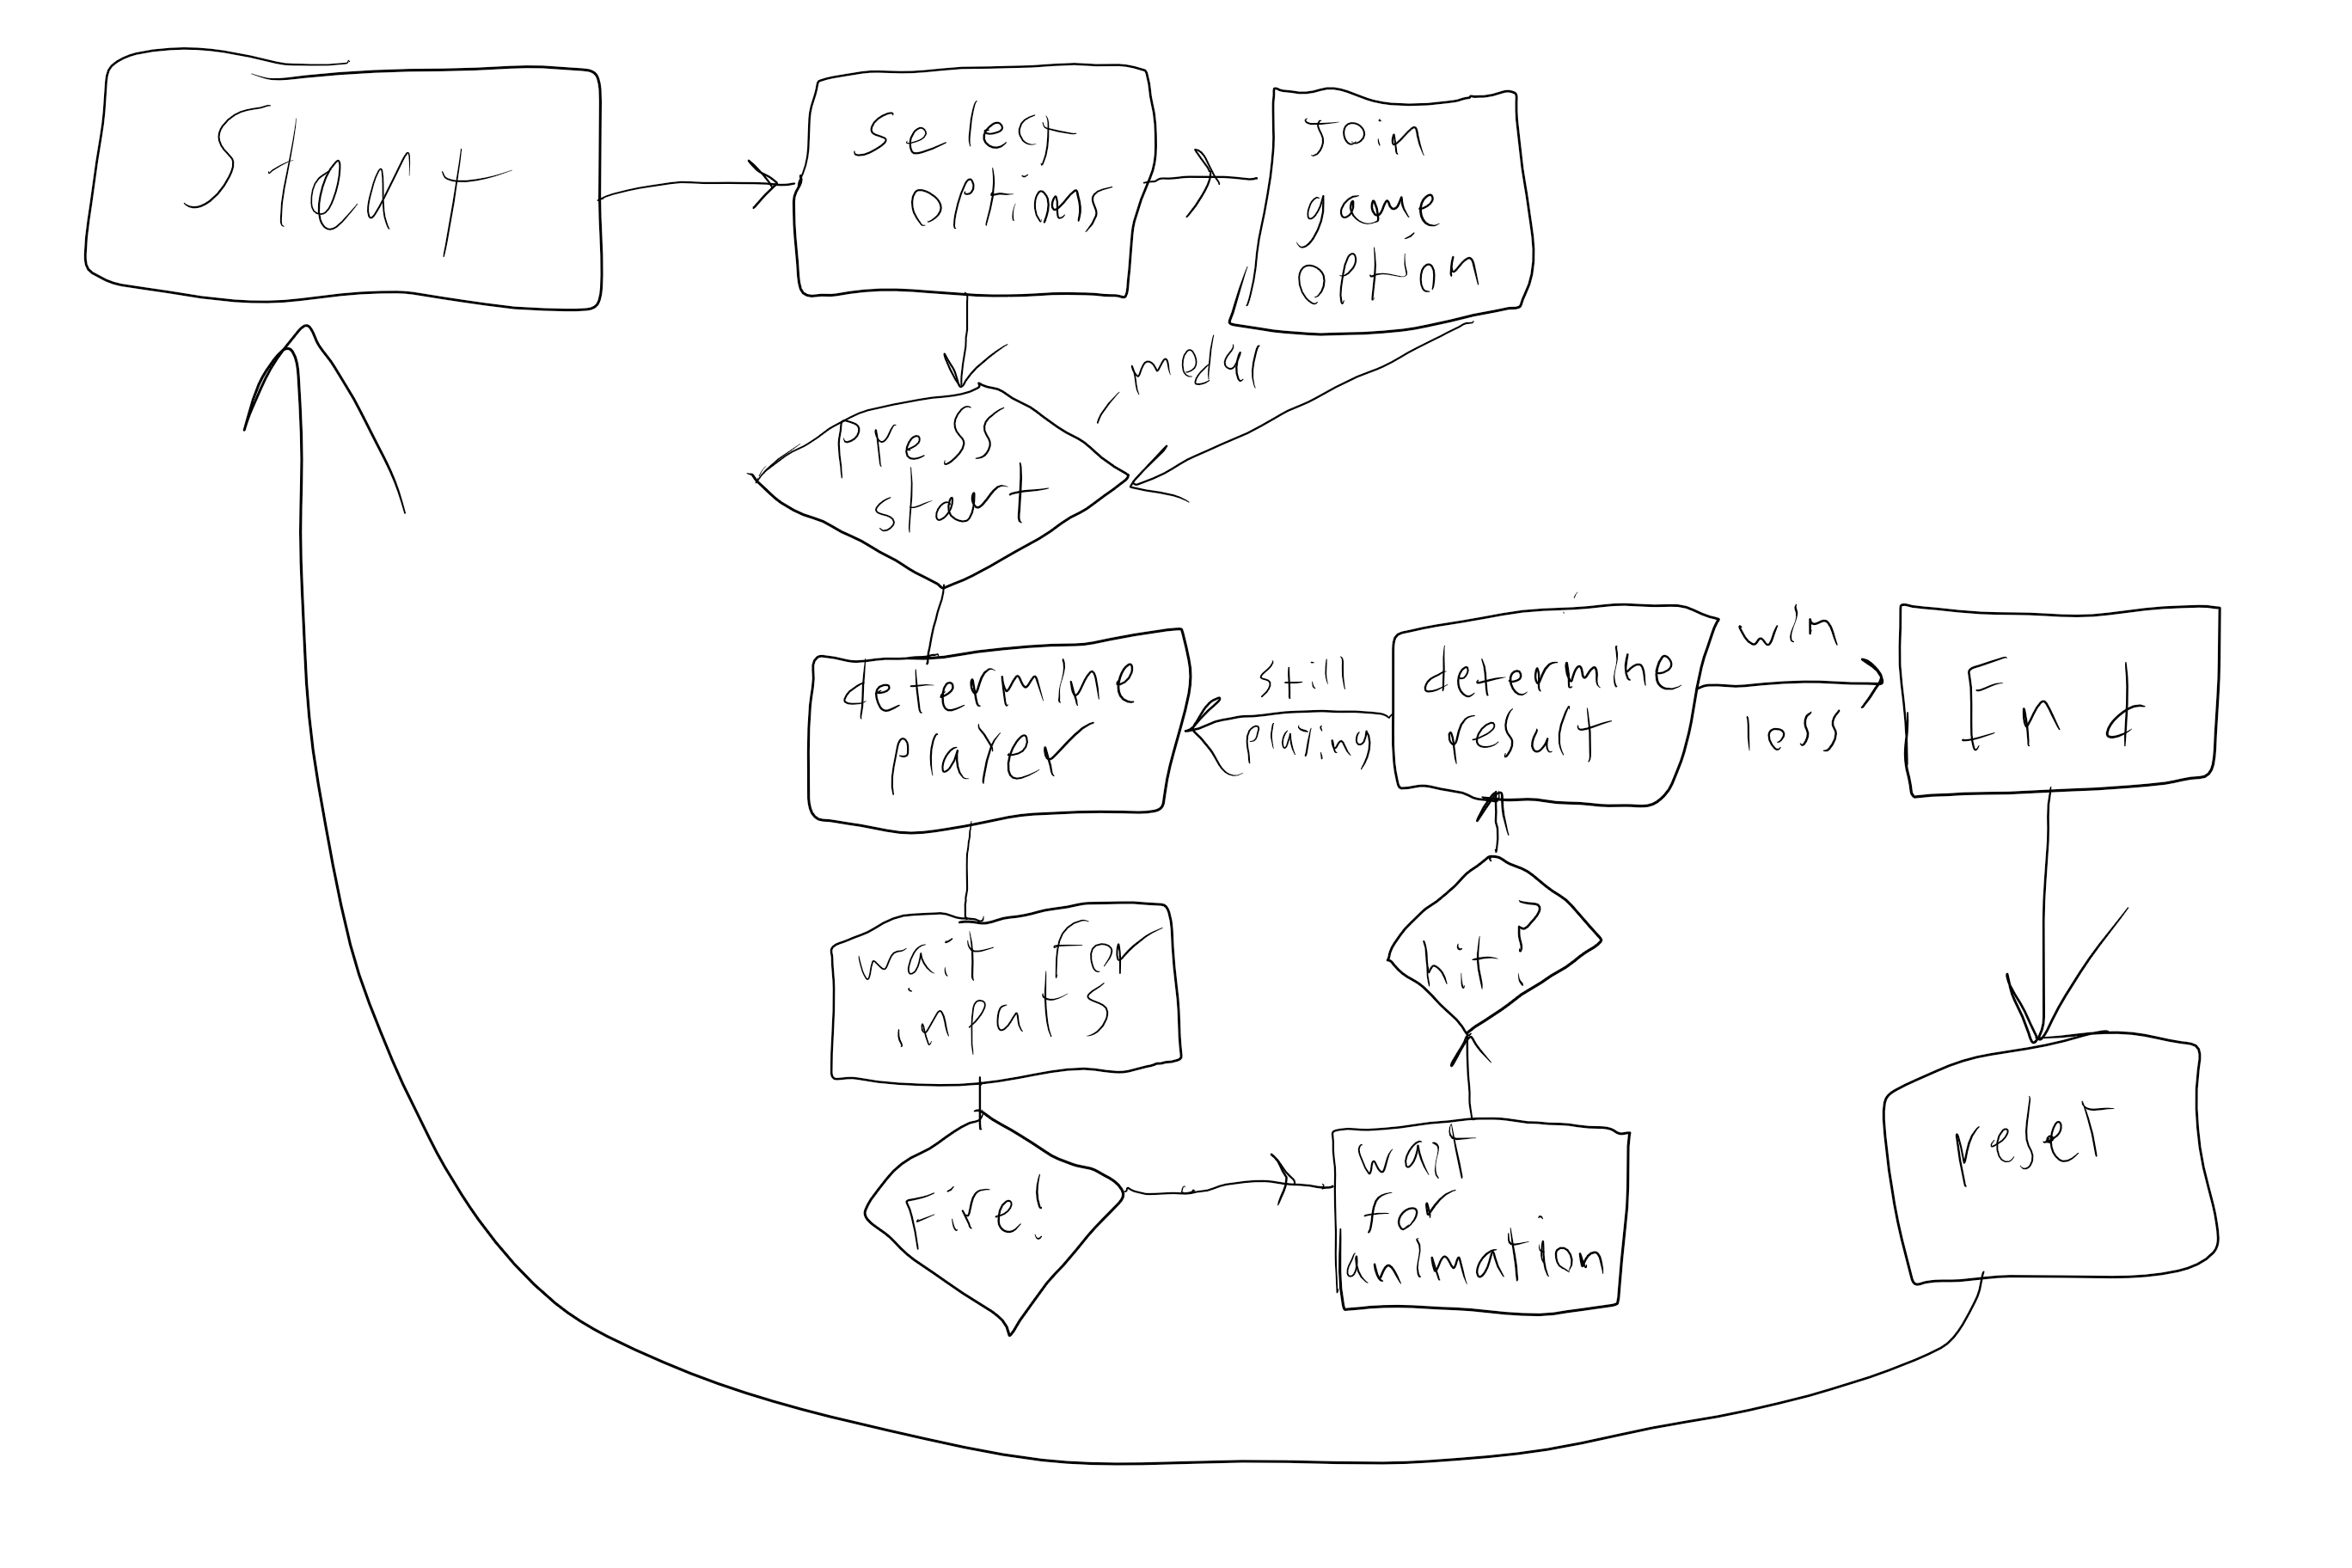 Start
Select
options
Join
game
option
modal
Press
start
determine
player
still
playing
determine
result
win
loss
End
wait for
inputs
hit?
Fire!
wait
for
animation
reset